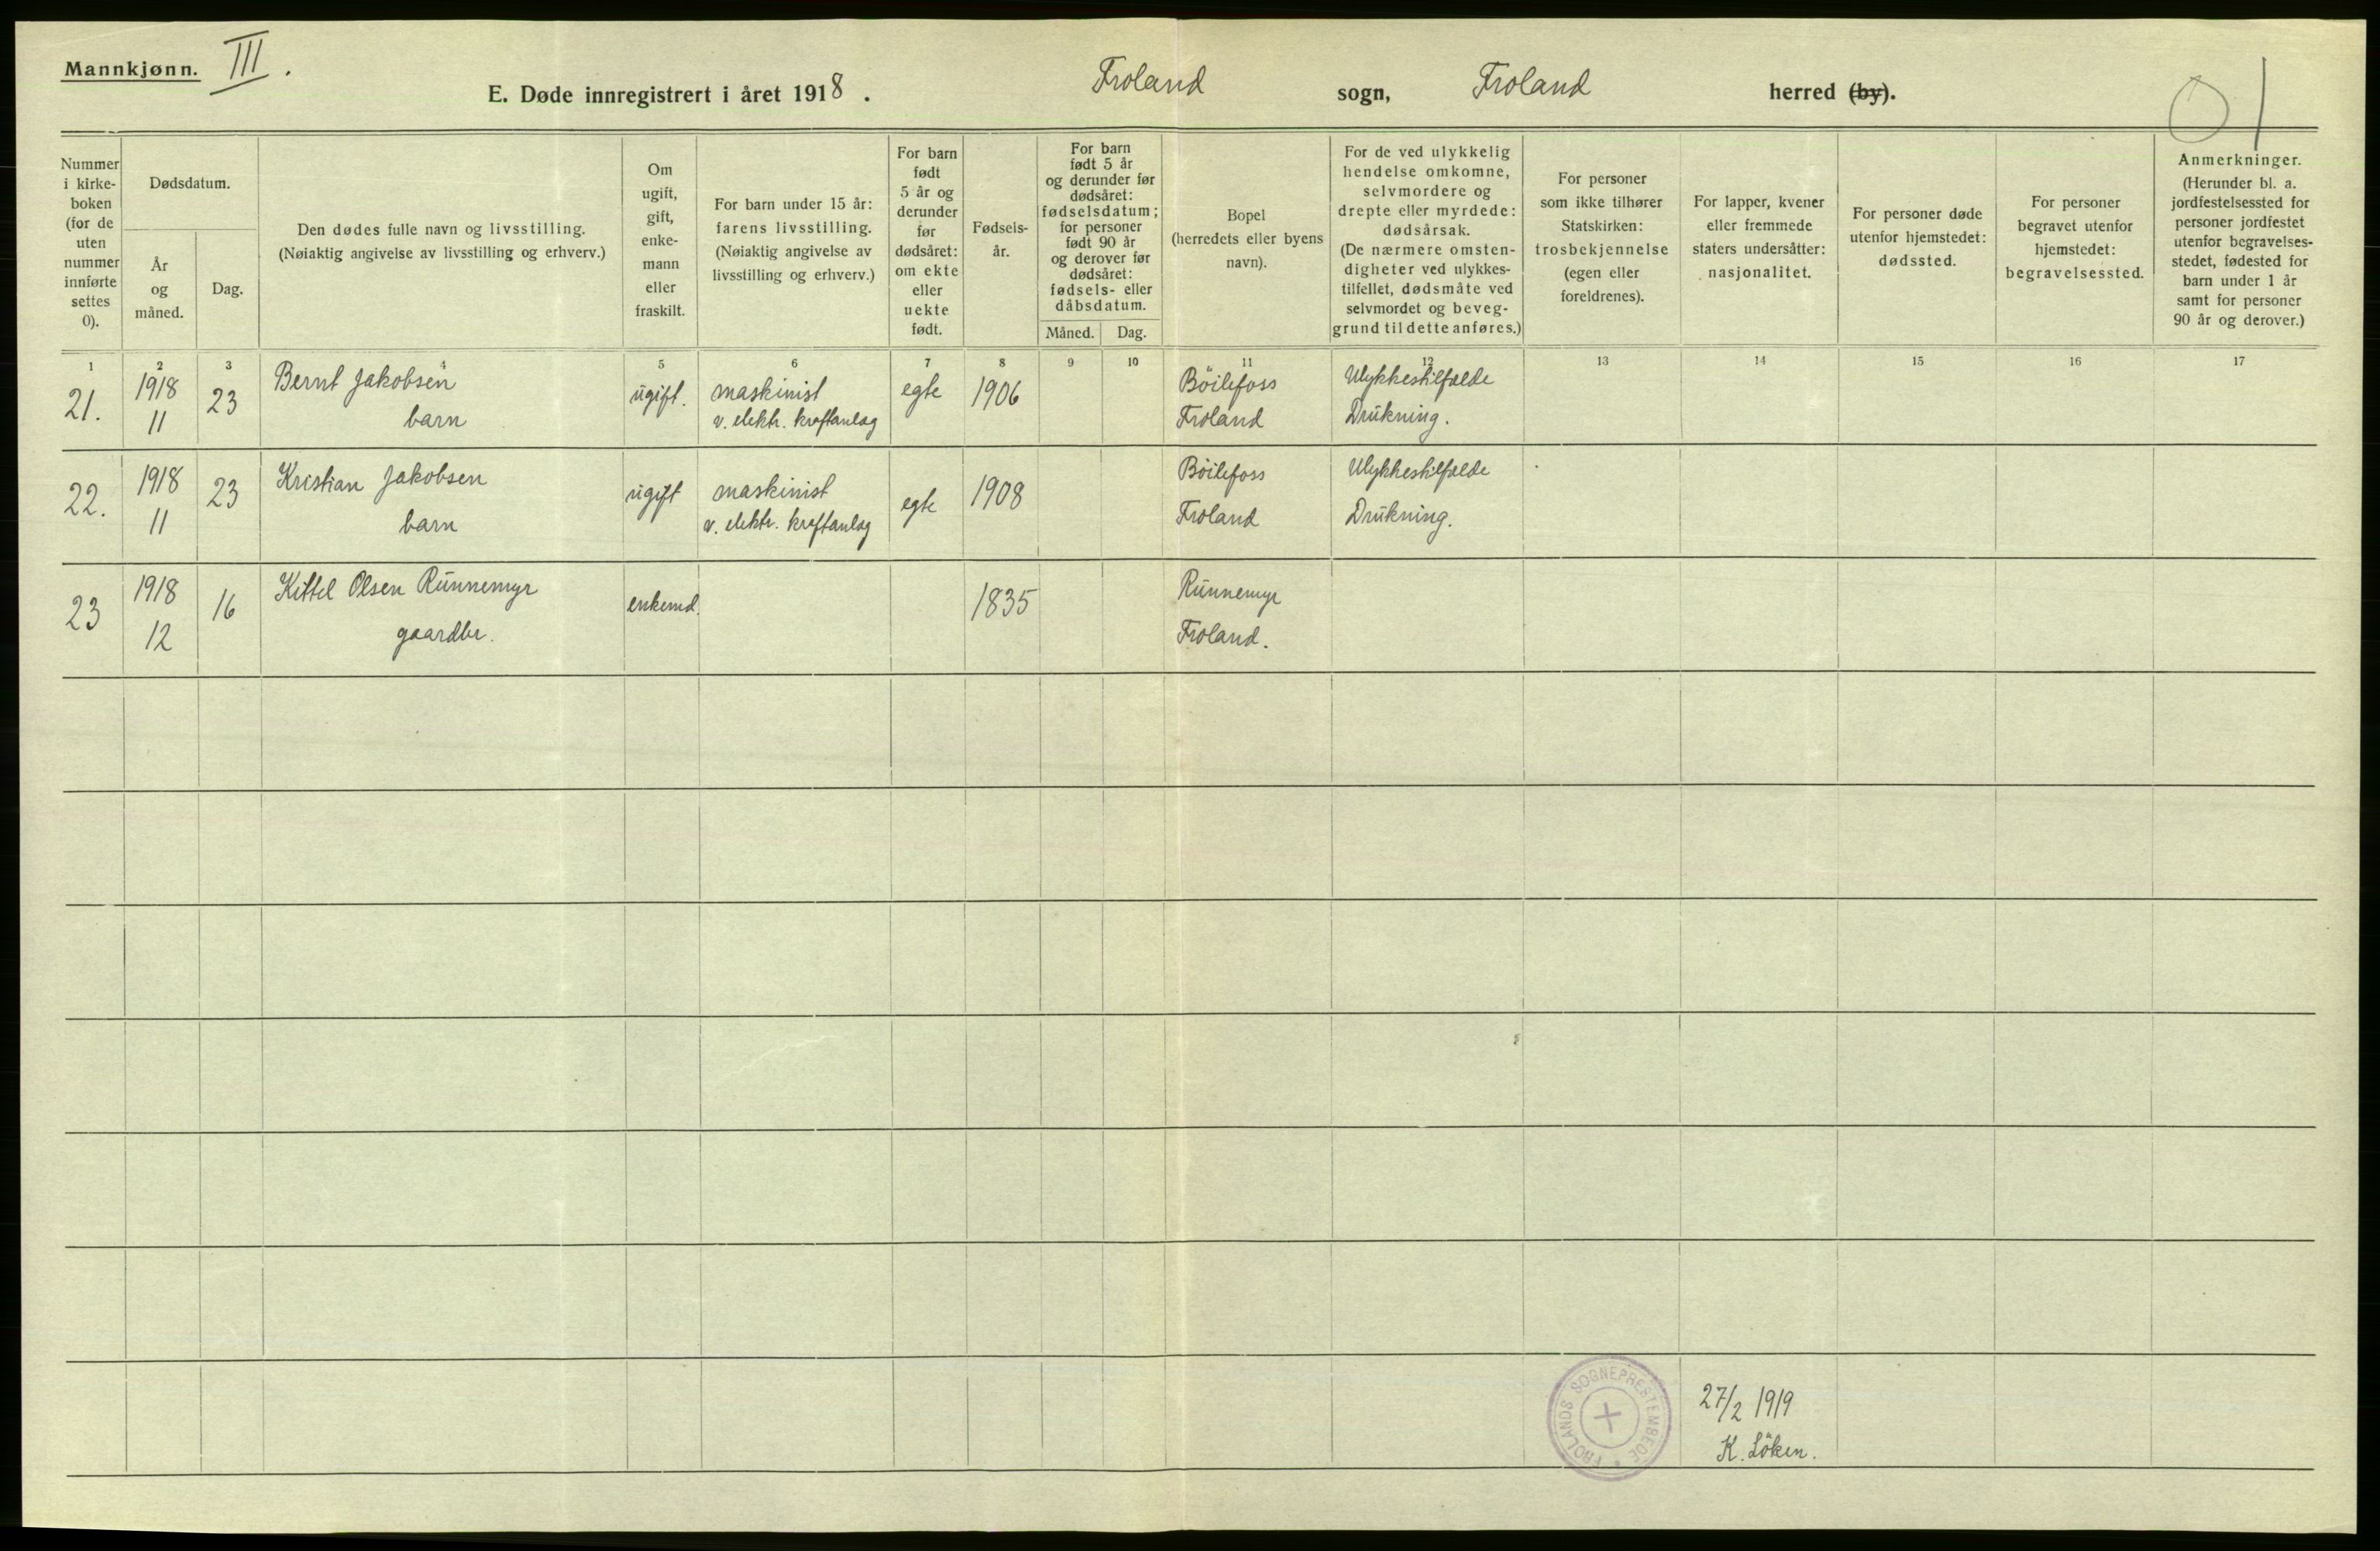 Mannkjønn. III.
E. Døde innregistrert i året 1918. Froland sogn, Froland herred (by).
01
Nummer
i kirke-
boken
(for de
uten
nummer
innførte
settes
0).
Dødsdatum.
År
og
måned.
Dag.
Den dødes fulle navn og livsstilling.
(Nøiaktig angivelse av livsstilling og erhverv.)
Om
ugift,
gift,
enke-
mann
eller
fraskilt.
For barn under 15 år:
farens livsstilling.
(Nøiaktig angivelse av
livsstilling og erhverv.)
For barn
født
5 år og
derunder
før
dødsåret:
om ekte
eller
uekte
født.
Fødsels-
år.
For barn
født 5 år
og derunder før
dødsåret:
fødselsdatum;
for personer
født 90 år
og derover før
dødsåret:
fødsels- eller
dåbsdatum.
Måned. Dag.
Bopel
(herredets eller byens
navn).
For de ved ulykkelig
hendelse omkomne,
selvmordere og
drepte eller myrdede:
dødsårsak.
(De nærmere omsten-
digheter ved ulykkes-
tilfellet, dødsmåte ved
selvmordet og beveg-
grund til dette anføres.)
For personer
som ikke tilhører
Statskirken:
trosbekjennelse
(egen eller
foreldrenes).
For lapper, kvener
eller fremmede
staters undersåtter:
nasjonalitet.
For personer døde
utenfor hjemstedet:
dødssted.
For personer
begravet utenfor
hjemstedet:
begravelsessted.
Anmerkninger.
(Herunder bl. a.
jordfestelsessted for
personer jordfestet
utenfor begravelses-
stedet, fødested for
barn under 1 år
samt for personer
90 år og derover.)
1 2 3 4 5 6 7 8 9 10 11 12 13 14 15 16 17
21. 1918 23 Bernt Jakobsen ugift. maskinist egte 1906 Böilefoss Ulykkestilfælde
11 barn v. elektr. kraftanlæg Froland Drukning.
22. 1918 23 Kristian Jakobsen ugift maskinist egte 1908 Böilefoss Ulykkestilfælde
11 barn v. elektr. kraftanlæg Froland Drukning.
23 1918 16 Kittel Olsen Runnemyr enkemd. 1835 Runnemyr
12 gaardbr. Froland.
FROLANDS SOGNEPRESTEMBEDE
27/2 1919
K. Löken.